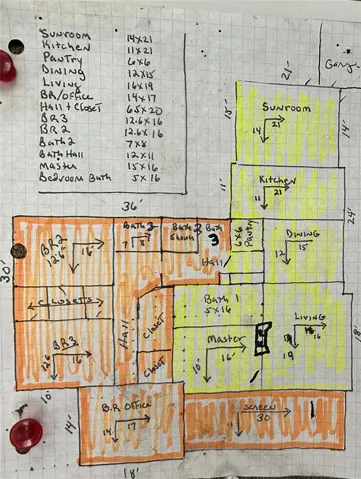 Sunroom 14x21
Kitchen 11x21
Pantry 6x6
Dining 12x15
Living 16x19
BR/office 14x17
Hall + Closet 65x20
BR3 12.6x16
BR2 12.6x16
Bath2 7x8
Bath Hall 12x11
Master 15x16
Bedroom Bath 5x16
21'
15'
SUNROOM
21
14
14'
11'
Kitchen
21
11
24'
36'
30'
BR2
12.6
16'
Bath 2
7
8
Bath
3
Hall
6x6
Pantry
DINING
15
12
CLOSETS
Hall
Closet
Closet
Bath 1
5x16
Master
16'
10'
LIVING
16
19
18'
BR3
16
12.6
10'
14'
B.R OFFICE
17
14
18'
SCREEN
30